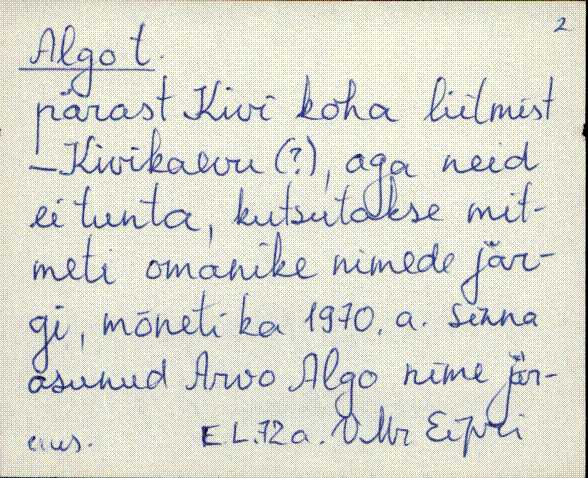 2
Algo t.
pärast Kivi koha liitmist
– Kivikaevu (?), aga neid
ei tunta, kutsutakse mit-
meti omanike nimede jär-
gi, mõneti ka 1970. a. sinna
asunud Arvo Algo nime jär-
EL.72a.